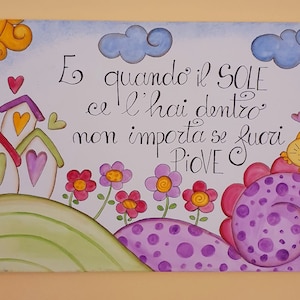 E quando il SOLE
ce l'hai dentro
non importa se fuori
PiOVE